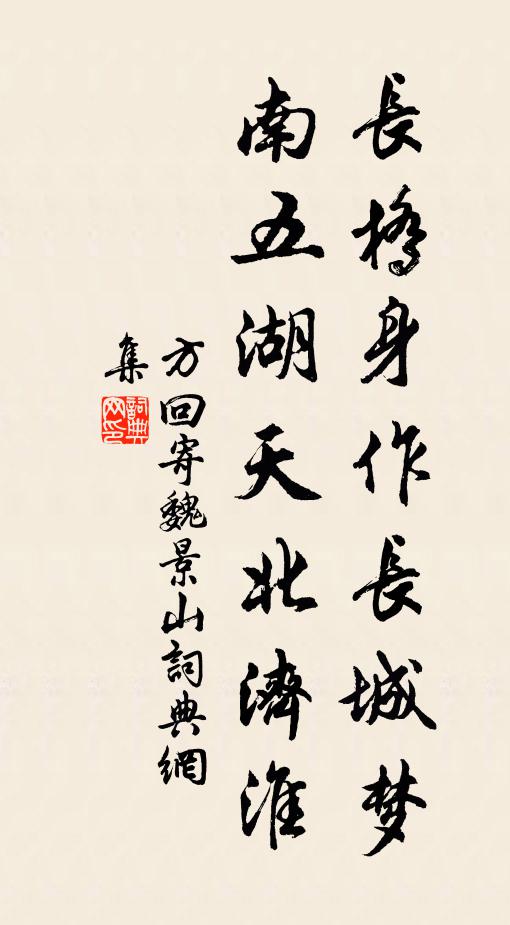 長橋身作長城梦
南五湖天北濟淮
方回寄魏景山詞典網
集
詞典
网印